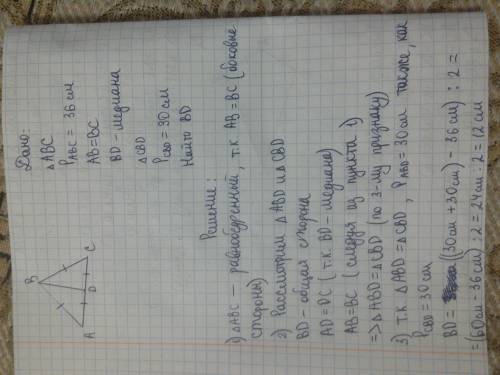 Дано:
△ABC
P ABC = 36 см
AB=BC
BD – медиана
△CBD
P CBD = 30 см
Найти BD
B
A
D
C
Решение:
1) △ABC – равнобедренный, т.к AB = BC (боковые
стороны)
2) Рассмотрим △ABD и △CBD
BD – общая сторона
AD = DC (т.к. BD – медиана)
AB = BC (следуя из пункта 1)
=> △ABD = △CBD (по 3-му признаку)
3) т.к △ABD = △CBD, P ABD = 30 см также, как
P CBD = 30 см
BD = ((30см + 30см) – 36 см) : 2 =
= (60 см – 36 см) : 2 = 24 см : 2 = 12 см